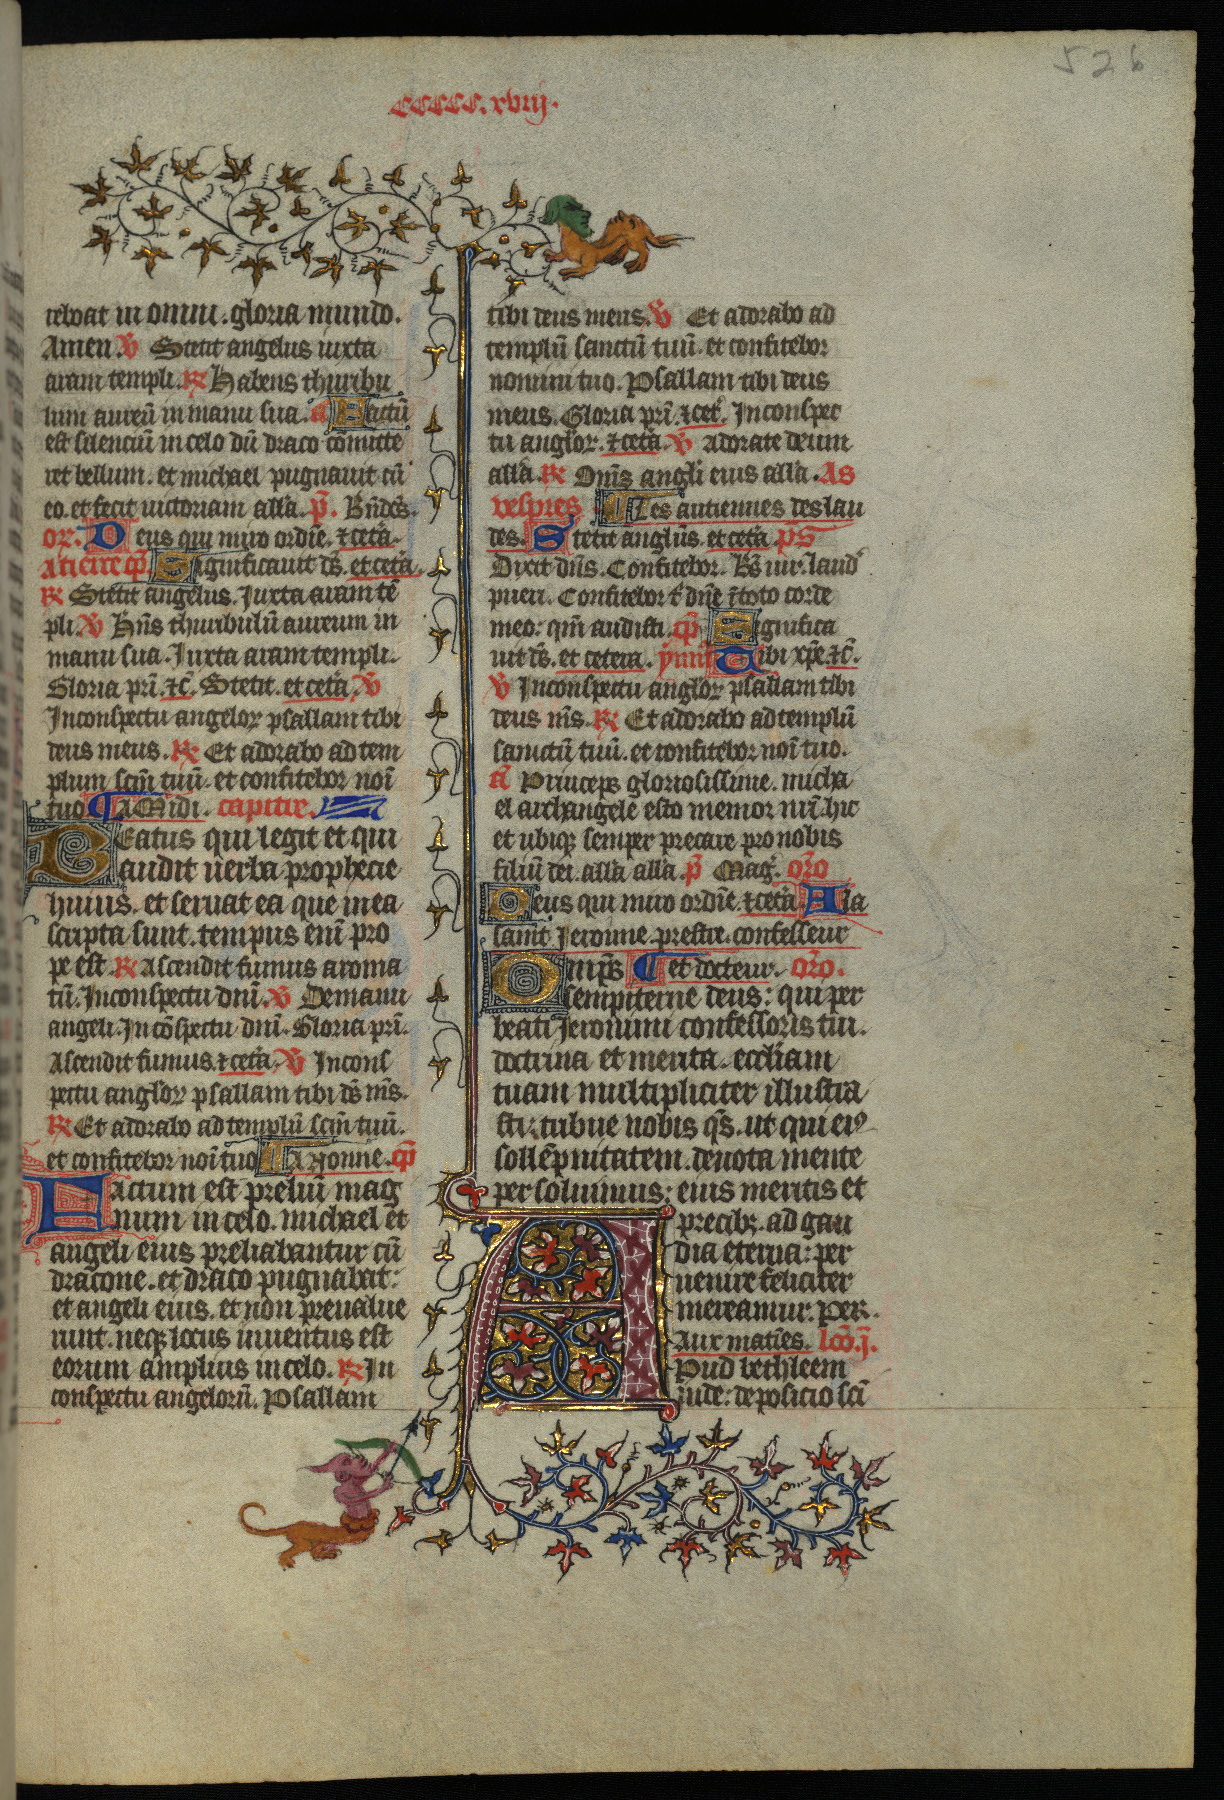 526
CCCCC.xviij.
celoat in omni. gloria mundo.
Amen. V̄ Stetit angelus iuxta
aram templi. R̄ Habens thuribu
lum aureū in manu sua. a Factū
est silenciū in celo dū draco cōmitte
ret bellum. et michael pugnauit cū
eo. et fecit uictoriam all'a. p̄. Bn̄dc̄s.
or. Deus qui miro ordīe. ⁊cetā.
A tierce cp̄ Significauit ds̄. et cetā.
R̄ Stetit angelus. Iuxta aram tē
pli. V̄ Hn̄s thuribulū aureum in
manu sua. Iuxta aram templi.
Gloria prī. ⁊c̄. Stetit. et cetā. V̄
In conspectu angelor psallam tibi
deus meus. R̄ Et adorabo ad tem
plum scm̄ tuū. et confitebor noī
tuo. A Midi. capitre.
Beatus qui legit et qui
audit uerba prophecie
huius. et seruat ea que in ea
scripta sunt. tempus enī pro
pe est. R̄ Ascendit fumus aroma
tū. In conspectu dnī. V̄ De manu
angeli. In cōspectu dnī. Gloria prī.
Ascendit fumus. ⁊cetā. V̄ In cons
pectu anglor psallam tibi ds̄ ms̄.
R̄ Et adorabo ad templū scm̄ tuū.
et confitebor noī tuo A Nonne. cp̄
Factum est preliū mag
num in celo. michael et
angeli eius preliabantur cū
dracone. et draco pugnabat:
et angeli eius. et non preualue
runt. neq; locus inuentus est
eorum amplius in celo. R̄ In
conspectu angelorū. Psallam
tibi deus meus. V̄ Et adorabo ad
templū sanctū tuū. et confitebor
nomini tuo. Psallam tibi deus
meus. Gloria prī. ⁊cet. In conspec
tu anglor. ⁊cetā. V̄ Adorate deum
all'a. R̄ Om̄s angli eius all'a. As
vespres Les antiennes des lau
des. Stetit anglus. et cetā p̄s
Dixit dn̄s. Confitebor. Bs̄ uir. laud'
pueri. Confitebor t' dn̄e ī toto corde
meo: qm̄ audisti. cp̄ Significa
uit ds̄. et cetera. ymn̄ Tibi xp̄e. ⁊c̄.
V̄ In conspectu anglor psallam tibi
deus ms̄. R̄ Et adorabo ad templū
sanctū tuū. et confitebor noī tuo.
a Princeps gloriosissime. micha
el archangele esto memor nrī. hic
et ubiq; semper precare pro nobis
filiū dei. all'a all'a. p̄ Mag'. or̄o
Deus qui miro ordīe. ⁊cetā. A la
saint Jeronme. prestre. confesseur
Omp̄s et docteur. or̄o.
sempiterne deus: qui per
beati Jeronimi confessoris tui.
doctrina et merita. eccl'iam
tuam multipliciter illustra
sti: tribue nobis qs̄. ut qui eiꝰ
sollēpnitatem. deuota mente
persoluimus: eius meritis et
precibꝫ. ad gau
dia eterna: per
uenire feliciter
mereamur. Per.
Aux matīes. lcō. j.
Apud bethleem
iude: deposicio scī